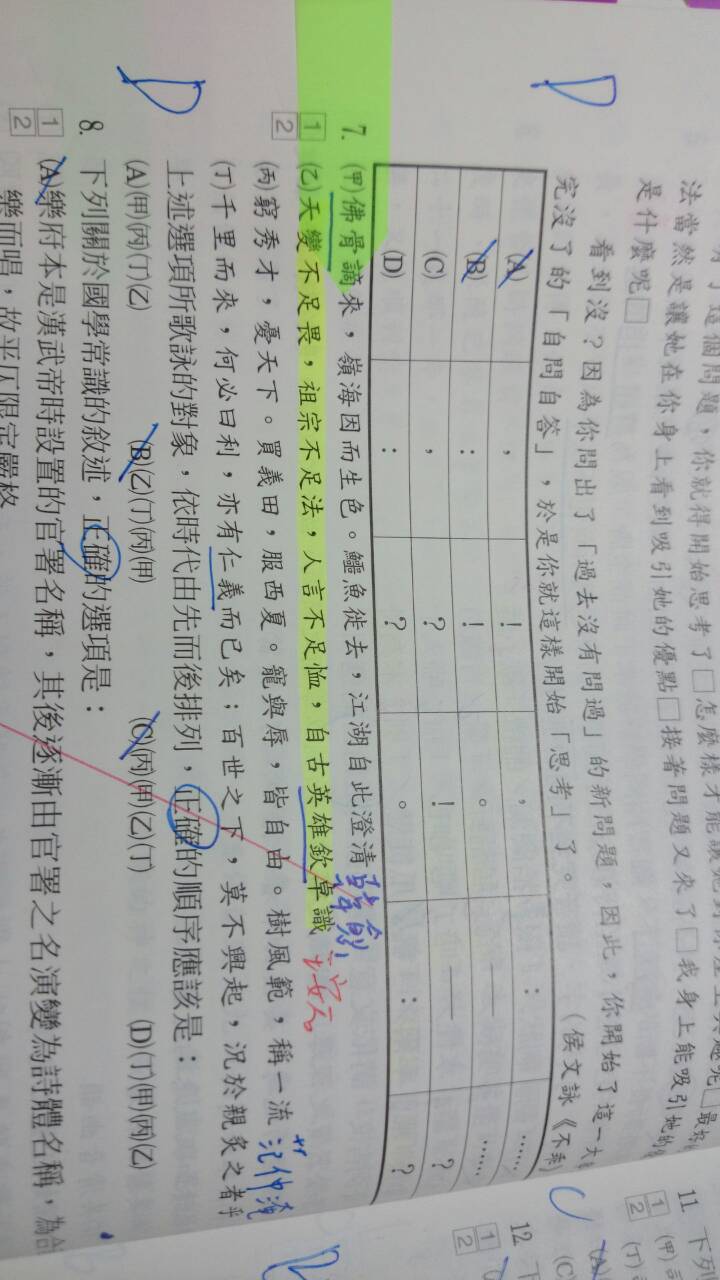 法當然是讓她在你身上看到吸引她的優點□接著問題又來了□我身上能吸引她的
是什麼呢□
看到沒？因為你問出了「過去沒有問過」的新問題，因此，你開始了這一大
完沒了的「自問自答」，於是你就這樣開始「思考」了。（侯文詠《不乖
(A) ， ！ ， ： ……
(B) ： ！ 。 —— ……
(C) ， ？ ！ —— ？
(D) ： ？ 。 ： ？
D
7. (甲)佛骨謫來，嶺海因而生色。鱷魚徙去，江湖自此澄清
1 (乙)天變不足畏，祖宗不足法，人言不足恤，自古英雄欽卓識
2 (丙)窮秀才，憂天下。買義田，服西夏。寵與辱，皆自由。樹風範，稱一流 范仲淹
(丁)千里而來，何必曰利，亦有仁義而已矣；百世之下，莫不興起，況於親炙之者乎
上述選項所歌詠的對象，依時代由先而後排列，正確的順序應該是：
(A)甲丙丁乙 (B)乙丁丙甲 (C)丙甲乙丁 (D)丁甲丙乙
D
8. 下列關於國學常識的敘述，正確的選項是：
1 (A)樂府本是漢武帝時設置的官署名稱，其後逐漸由官署之名演變為詩體名稱，為
2 樂而唱，故平仄限定嚴格
11 下列
1 (甲)
2 (丁)
(A)
(C)
12
1
2
C